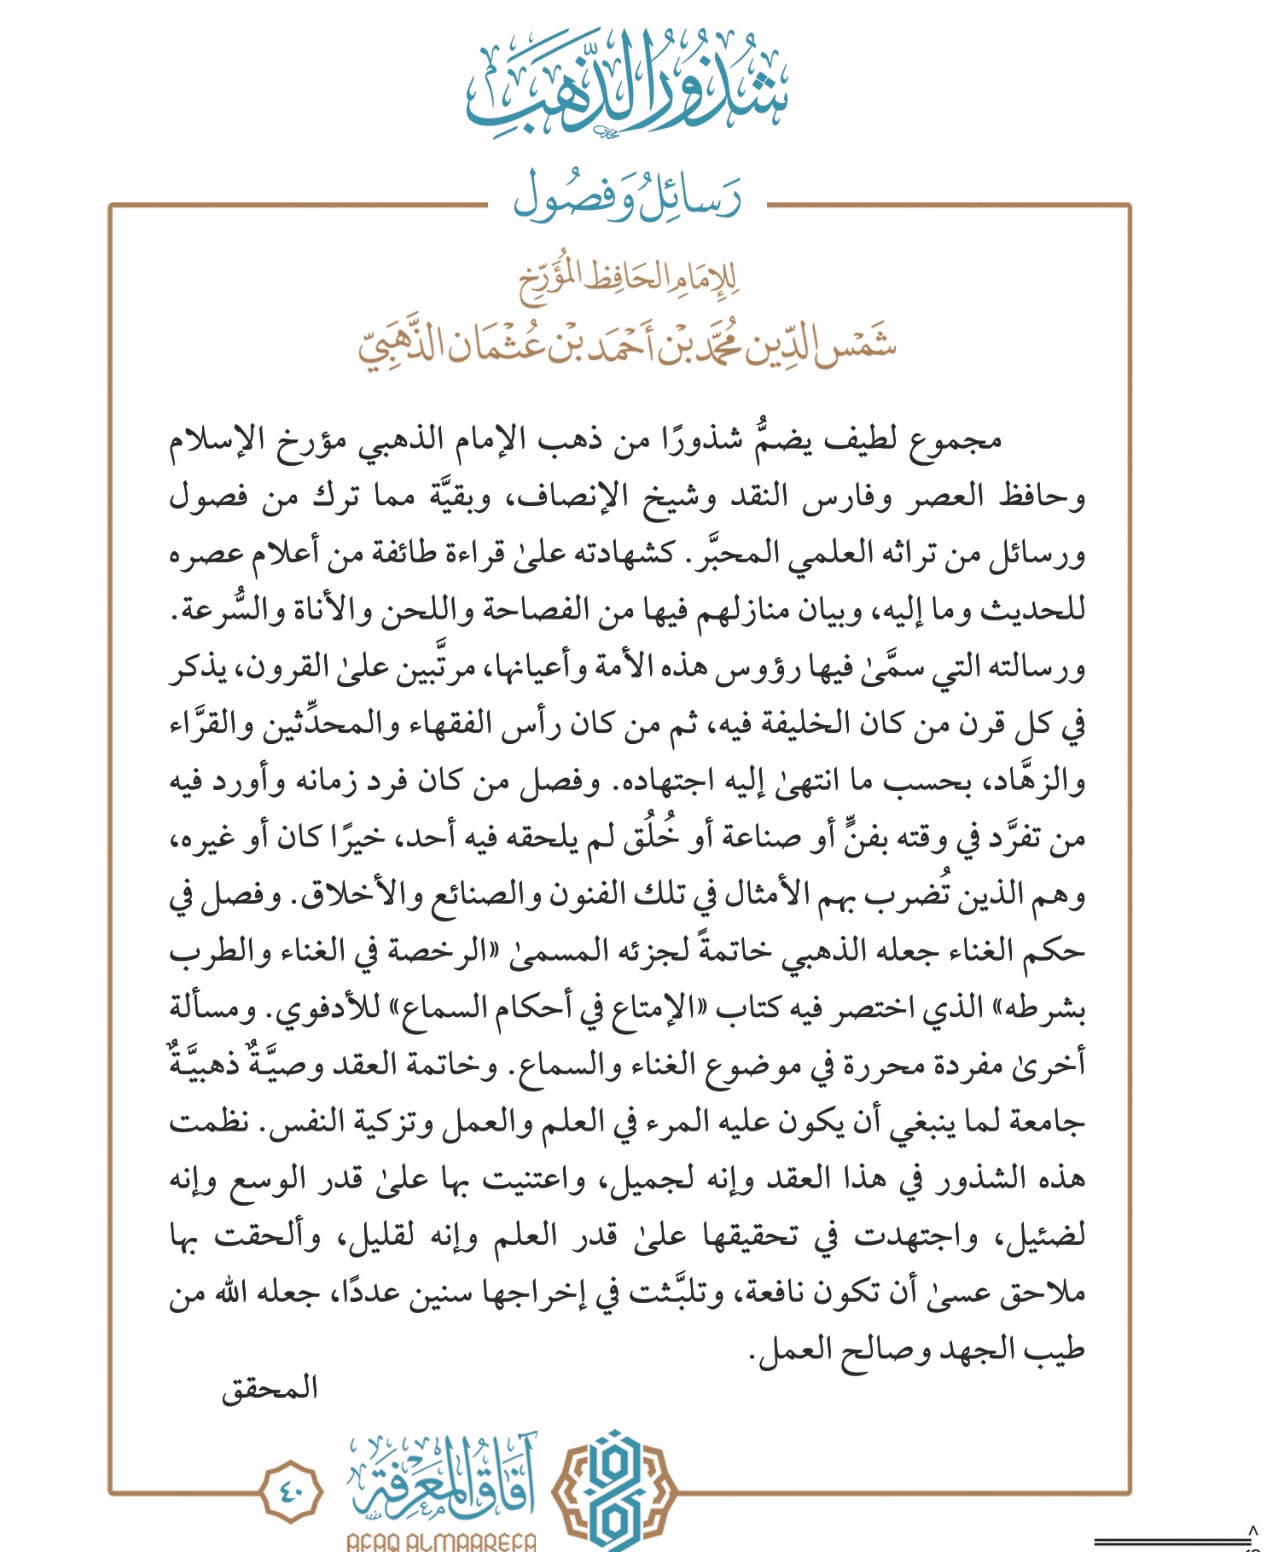 شُذُورُ الذَّهَبِ
رَسَائِلُ وَفُصُول
لِلإِمَامِ الحَافِظِ المُؤَرِّخِ
شَمْسِ الدِّين مُحَمَّد بْن أَحْمَد بْن عُثْمَان الذَّهَبِيّ
مجموع لطيف يضمُّ شذورًا من ذهب الإمام الذهبي مؤرخ الإسلام
وحافظ العصر وفارس النقد وشيخ الإنصاف، وبقيَّة مما ترك من فصول
ورسائل من تراثه العلمي المحبَّر. كشهادته علىٰ قراءة طائفة من أعلام عصره
للحديث وما إليه، وبيان منازلهم فيها من الفصاحة واللحن والأناة والسُّرعة.
ورسالته التي سمَّىٰ فيها رؤوس هذه الأمة وأعيانها، مرتَّبين علىٰ القرون، يذكر
في كل قرن من كان الخليفة فيه، ثم من كان رأس الفقهاء والمحدِّثين والقرَّاء
والزهَّاد، بحسب ما انتهىٰ إليه اجتهاده. وفصل من كان فرد زمانه وأورد فيه
من تفرَّد في وقته بفنٍّ أو صناعة أو خُلُق لم يلحقه فيه أحد، خيرًا كان أو غيره،
وهم الذين تُضرب بهم الأمثال في تلك الفنون والصنائع والأخلاق. وفصل في
حكم الغناء جعله الذهبي خاتمةً لجزئه المسمىٰ «الرخصة في الغناء والطرب
بشرطه» الذي اختصر فيه كتاب «الإمتاع في أحكام السماع» للأدفوي. ومسألة
أخرىٰ مفردة محررة في موضوع الغناء والسماع. وخاتمة العقد وصيَّةٌ ذهبيَّةٌ
جامعة لما ينبغي أن يكون عليه المرء في العلم والعمل وتزكية النفس. نظمت
هذه الشذور في هذا العقد وإنه لجميل، واعتنيت بها علىٰ قدر الوسع وإنه
لضئيل، واجتهدت في تحقيقها علىٰ قدر العلم وإنه لقليل، وألحقت بها
ملاحق عسىٰ أن تكون نافعة، وتلبَّثت في إخراجها سنين عددًا، جعله الله من
طيب الجهد وصالح العمل.
المحقق
آفَاقُ المَعْرِفَة
AFAQ ALMAAREFA
٤٠
٨